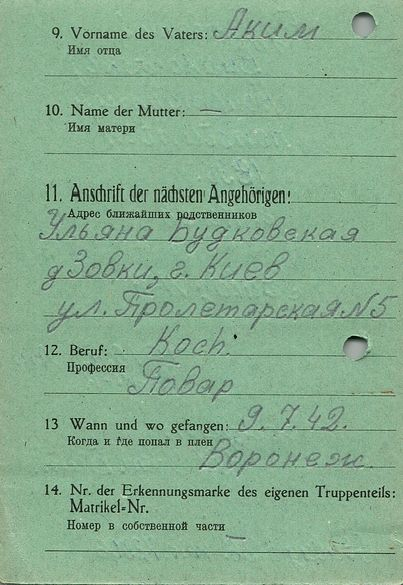 9. Vorname des Vaters: Аким
Имя отца
10. Name der Mutter: —
Имя матери
11. Anschrift der nächsten Angehörigen:
Адрес ближайших родственников
Ульяна Будковская
д Зовки, г. Киев
ул. Пролетарская N 5
12. Beruf: Koch.
Профессия
Повар
13 Wann und wo gefangen: 9.7.42.
Когда и где попал в плен
Воронеж.
14. Nr. der Erkennungsmarke des eigenen Truppenteils:
Matrikel=Nr.
Номер в собственной части —